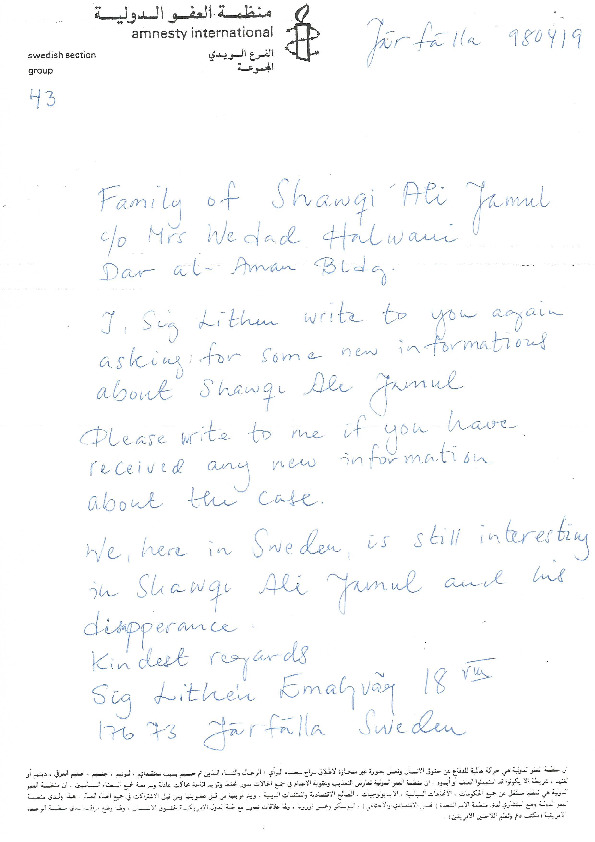 منظمة العفو الدولية
amnesty international
swedish section
الفرع السويدي
group
المجموعة
43
Järfälla 980419
Family of Shawqi Ali Jamul
c/o Mrs Wedad Halwani
Dar al-Aman Bldg.
I, Sig Lithen write to you again
asking for some new informations
about Shawqi Ali Jamul
Please write to me if you have
received any new information
about the case.
We, here in Sweden, is still interesting
in Shawqi Ali Jamul and his
disapperance.
Kindest regards
Sig Lithén Emaljväg 18 VIII
176 73 Järfälla Sweden